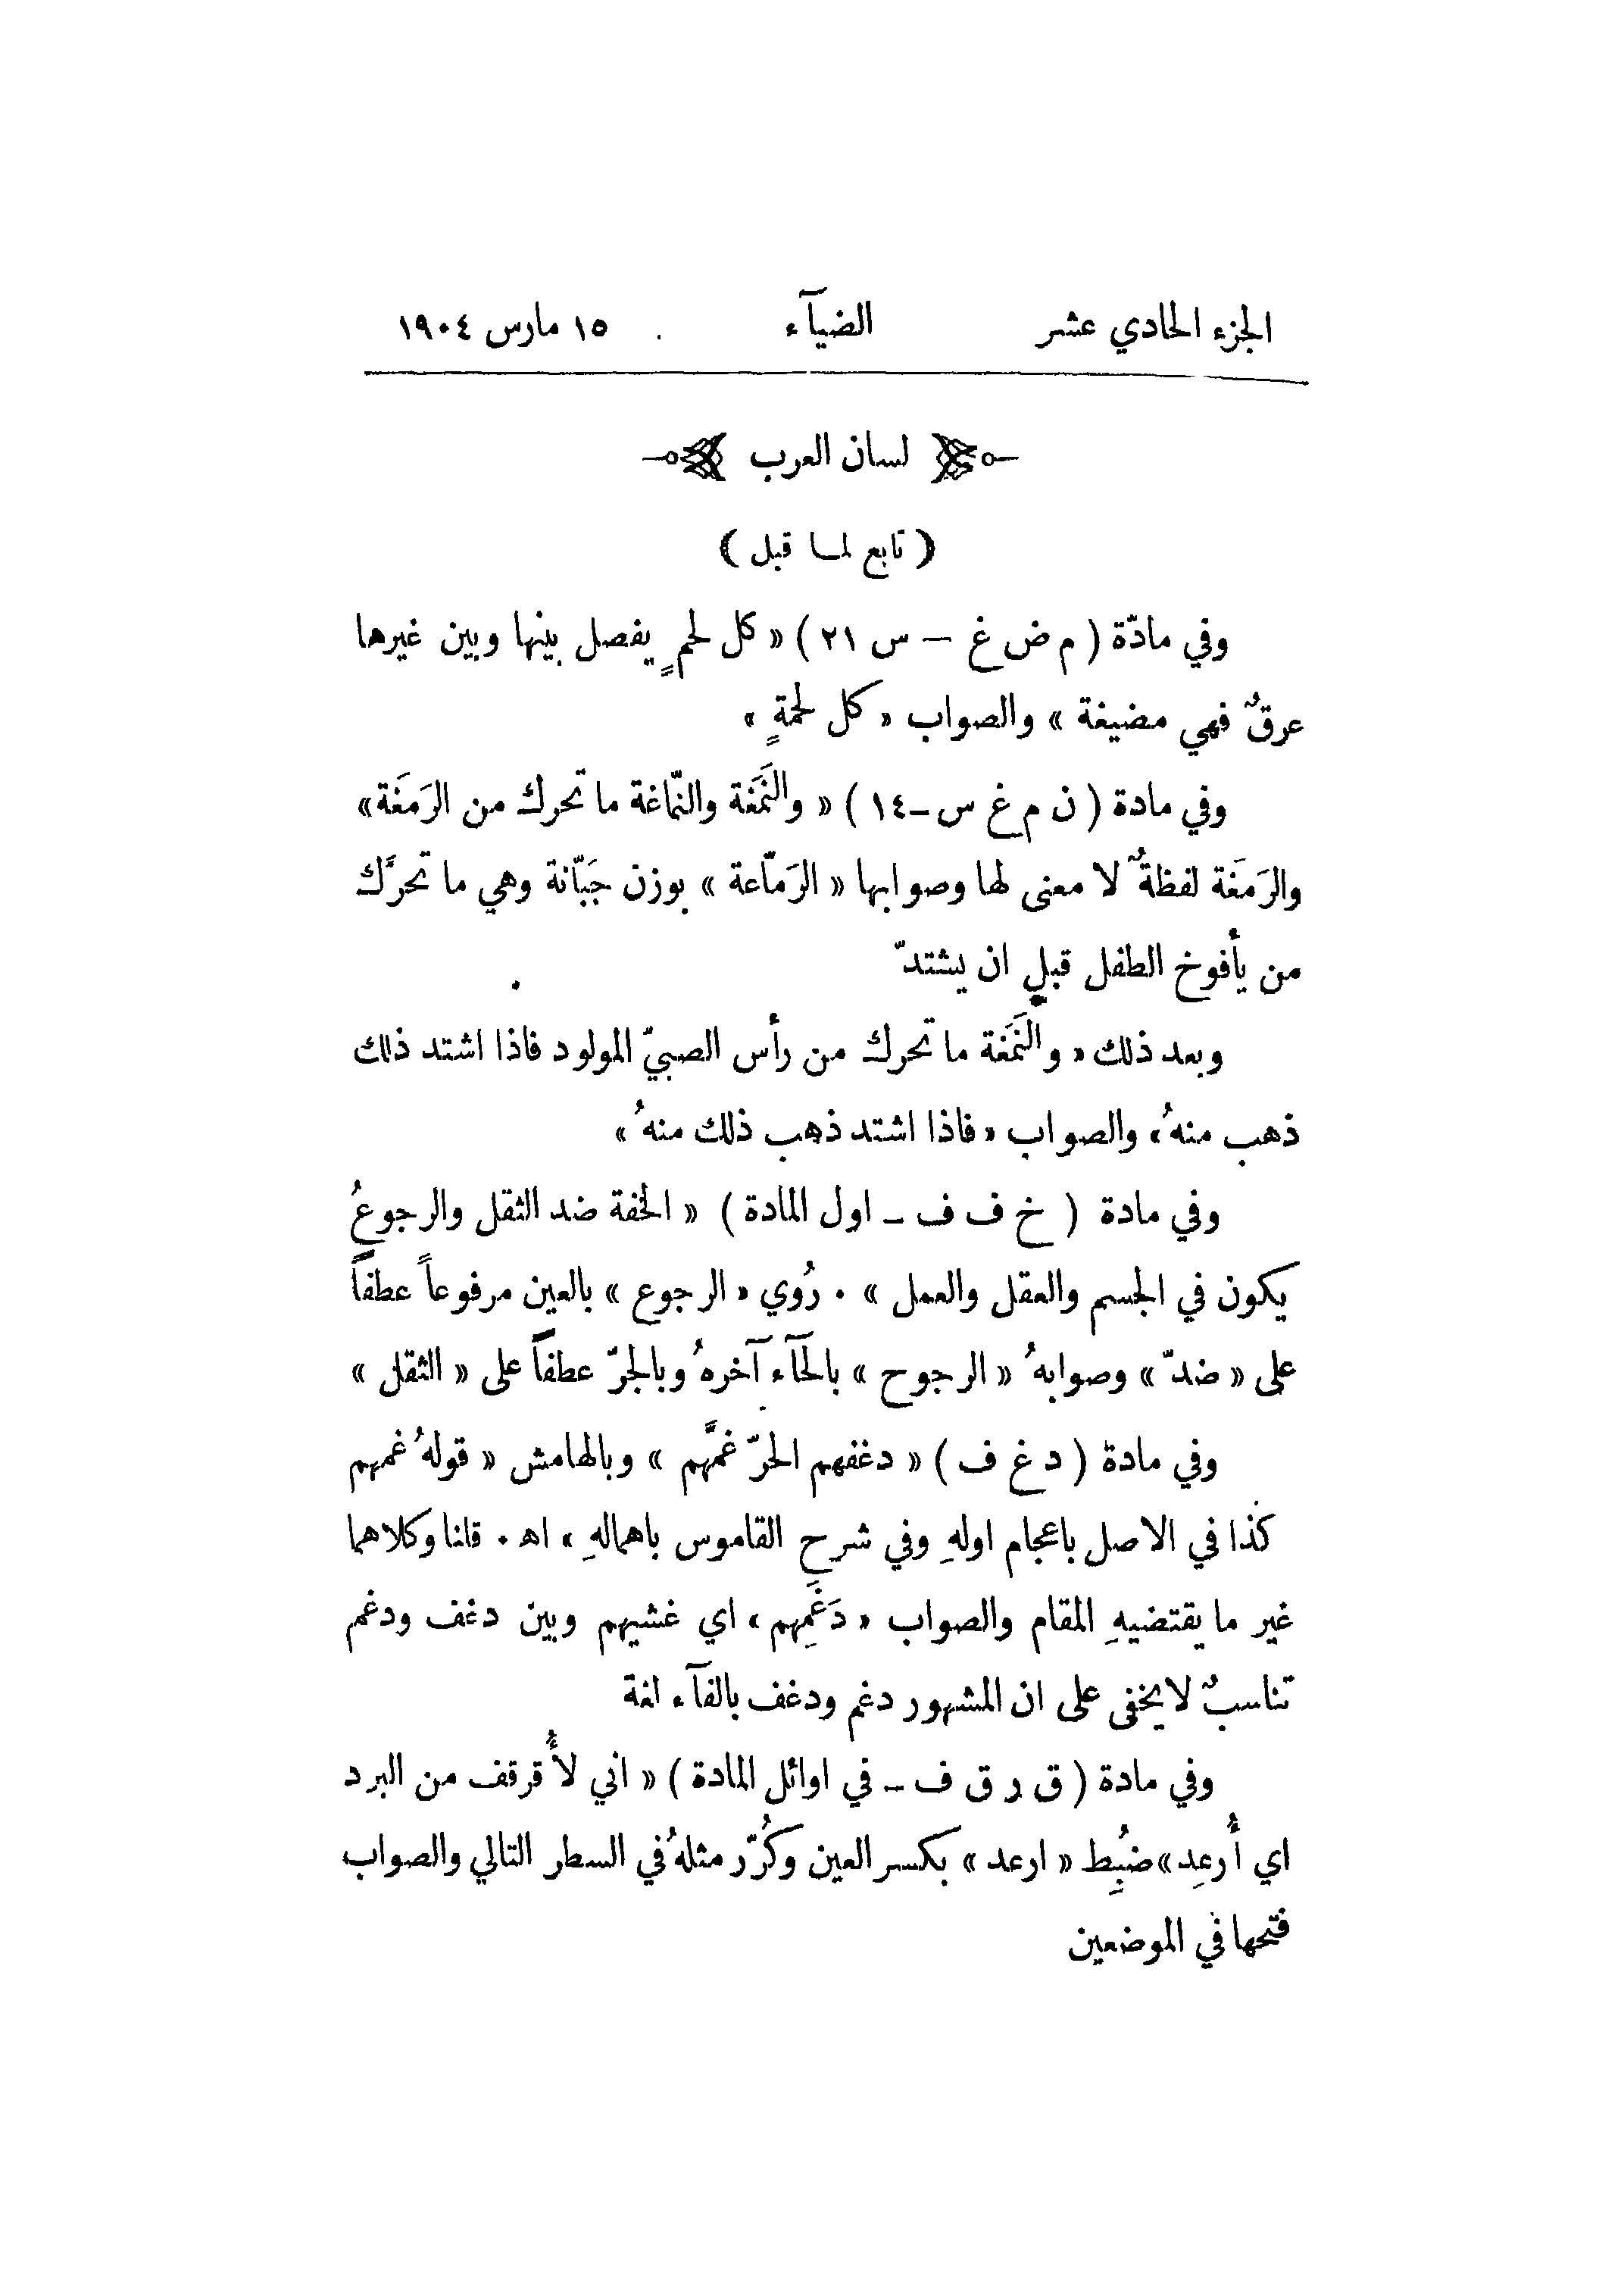 الجزء الحادي عشر الضيآء ١٥ مارس ١٩٠٤
لسان العرب
( تابع لما قبل )
وفي مادّة ( م ض غ – س ٢١ ) « كل لحمٍ يفصل بينها وبين غيرها
عرقٌ فهي مضيغة » والصواب « كل لحمةٍ »
وفي مادة ( ن م غ س-١٤ ) « والنَمَغة والنّماغة ما تحرك من الرَمَغة»
والرَمَغة لفظةٌ لا معنى لها وصوابها « الرَمّاعة » بوزن جَبّانة وهي ما تحرَّك
من يأفوخ الطفل قبل ان يشتدّ
وبعد ذلك « والنَمَغة ما تحرك من رأس الصبيّ المولود فاذا اشتد ذلك
ذهب منهُ» والصواب « فاذا اشتد ذهب ذلك منهُ »
وفي مادة ( خ ف ف - اول المادة ) « الخفة ضد الثقل والرجوعُ
يكون في الجسم والعقل والعمل » . رُوي « الرجوع » بالعين مرفوعاً عطفاً
على « ضدّ » وصوابهُ « الرجوح » بالحآء آخرهُ وبالجرّ عطفاً على « الثقل »
وفي مادة ( د غ ف ) « دغفهم الحرّ غمَّهم » وبالهامش « قولهُ غمهم
كذا في الاصل باعجام اولهِ وفي شرح القاموس باهمالهِ » اه . قلنا وكلاهما
غير ما يقتضيهِ المقام والصواب « دَغَمِهم » اي غشيهم وبين دغف ودغم
تناسبٌ لا يخفى على ان المشهور دغم ودغف بالفآء لغة
وفي مادة ( ق ر ق ف - في اوائل المادة ) « اني لأُقرقف من البرد
اي أُرعِد» ضُبِط « ارعد » بكسر العين وكُرّر مثلهُ في السطر التالي والصواب
فتحها في الموضعين